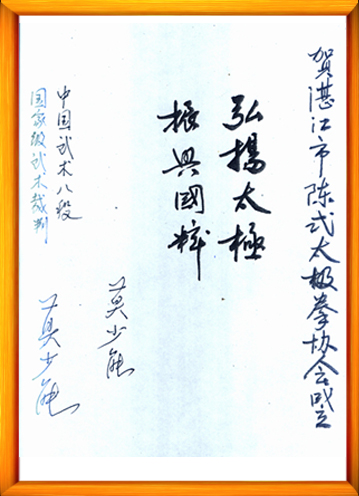 贺湛江市陈式太极拳协会成立
弘揚太極
振興國粹
莫少能
中国武术八段
国家级武术裁判
莫少能